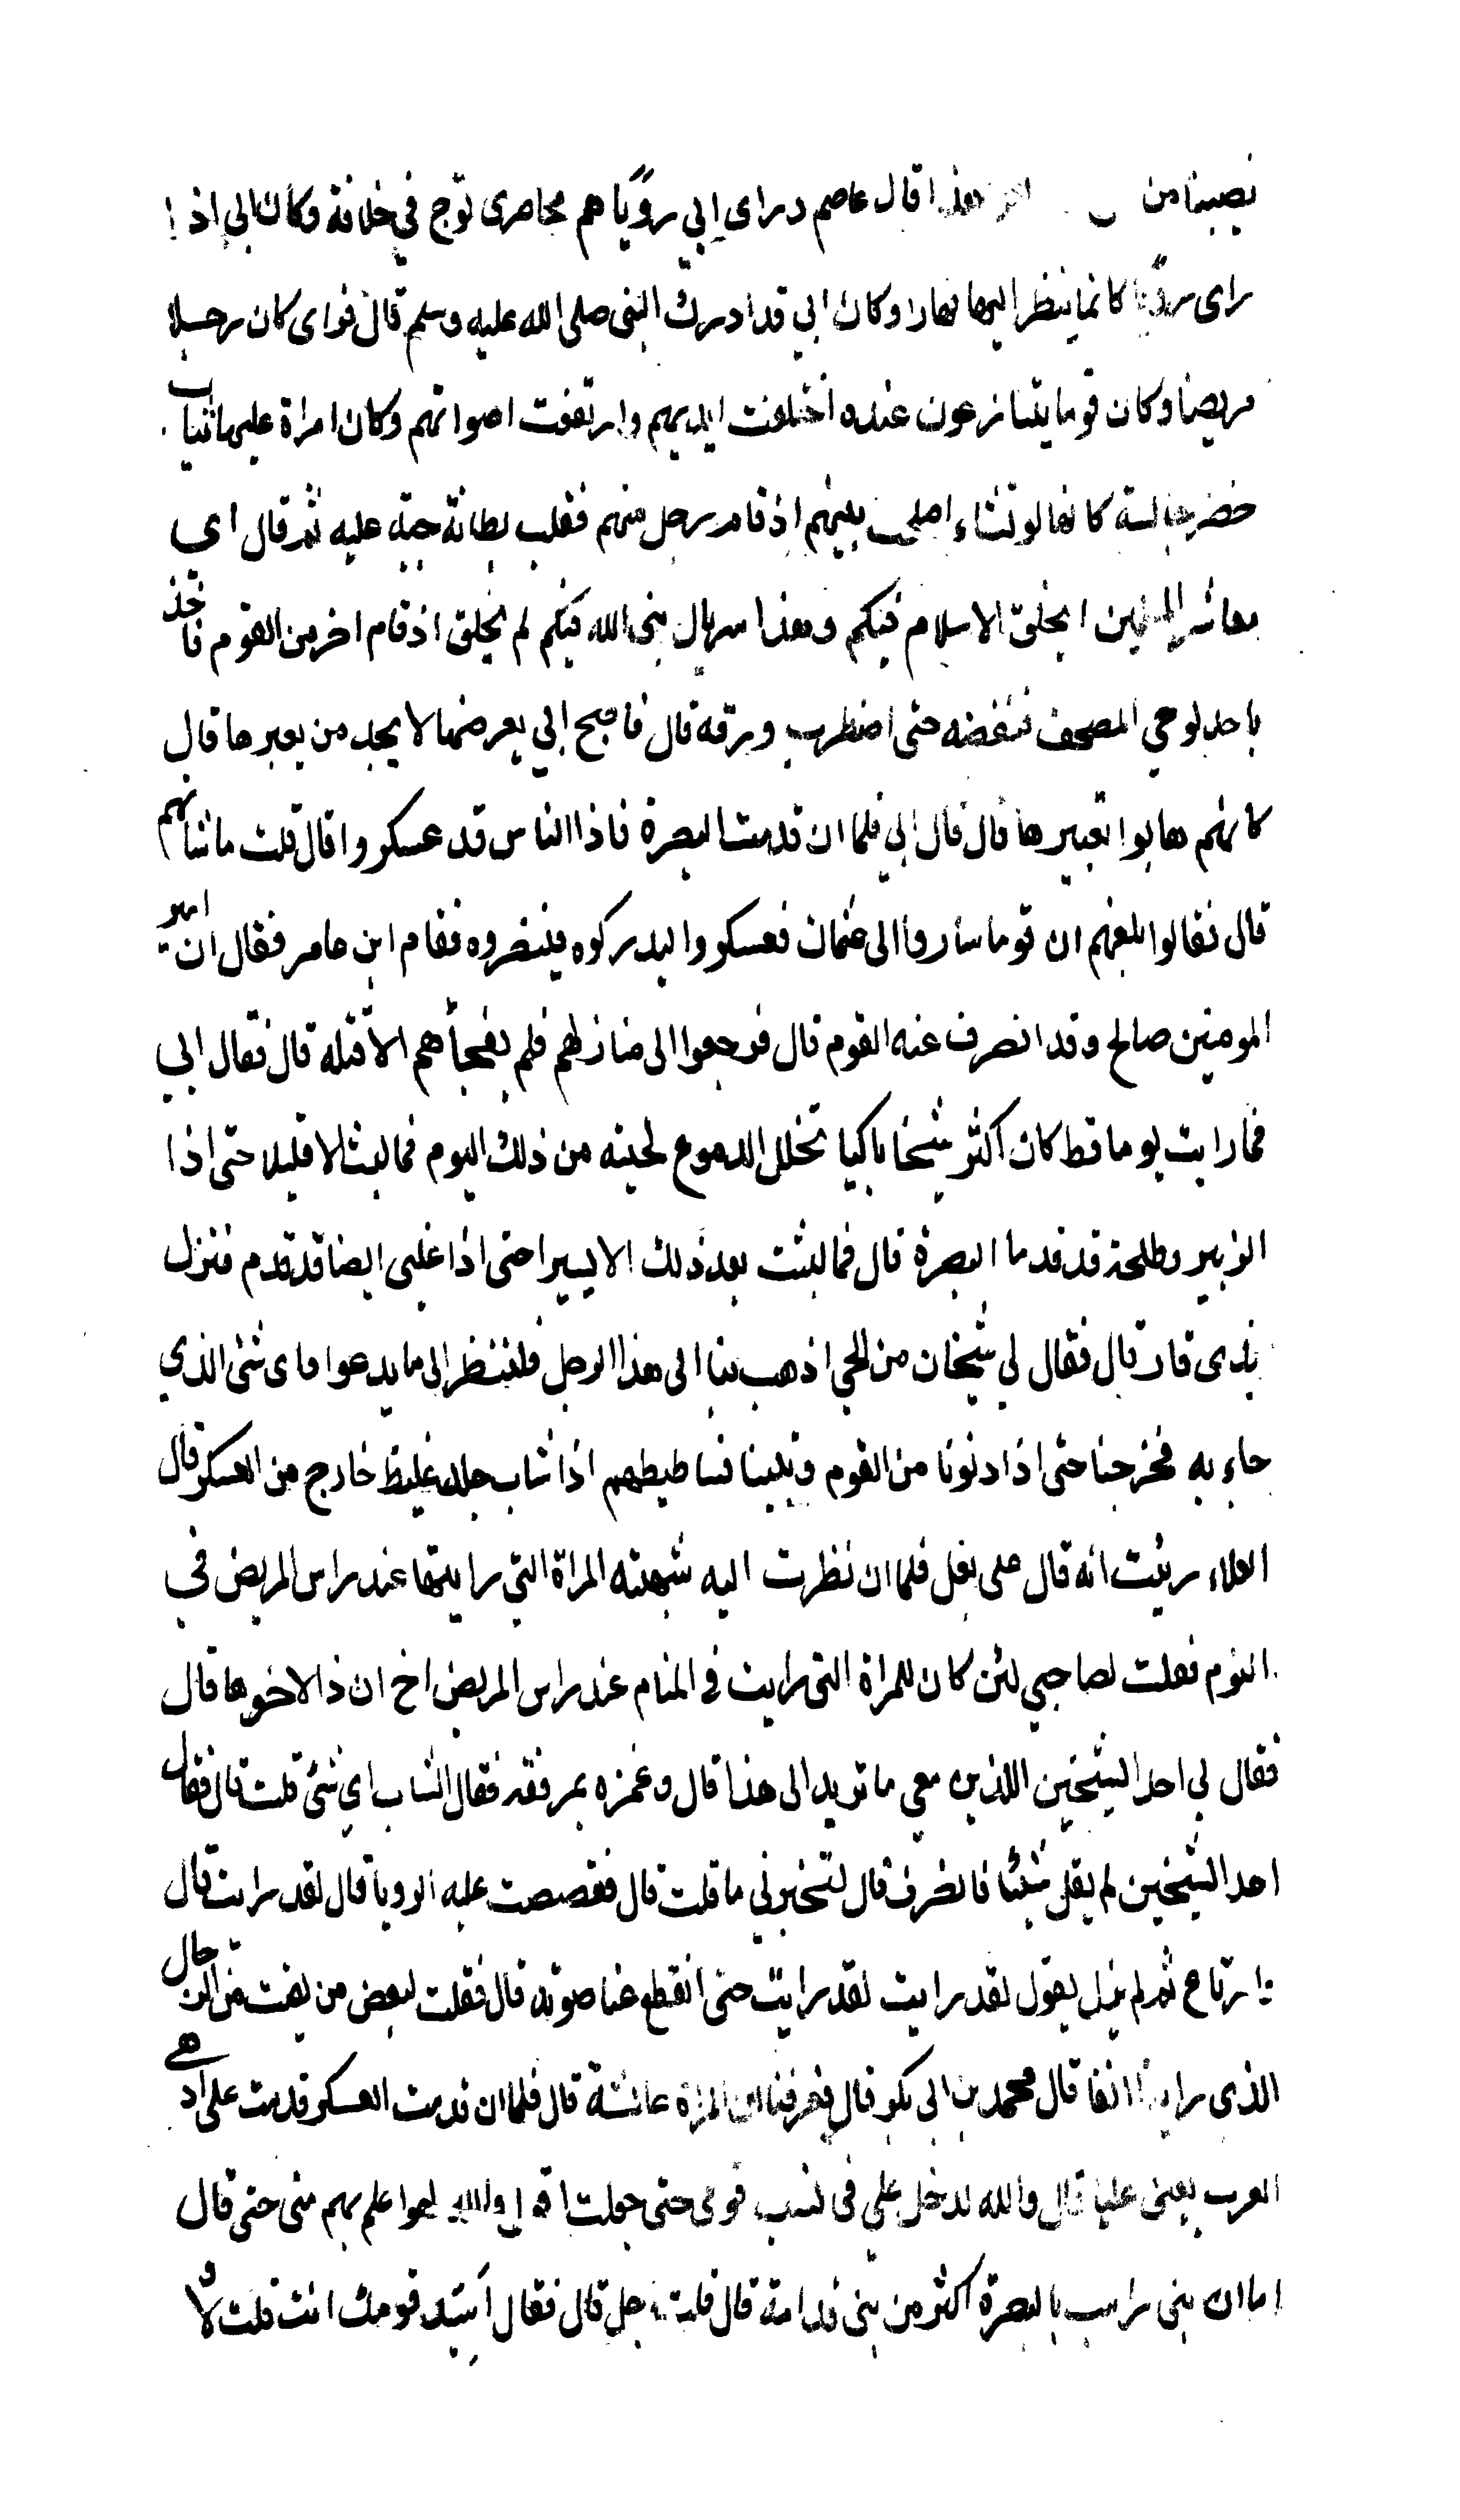 نصيبنا من هذا قال عاصم وراى ابي رويًا هم محاصرى توّج في خلافة وكان ابي اذا
راى رويا كانما ينظر اليها نهارا وكان ابي قد ادرك النبى صلى الله عليه وسلم قال فراى كان رجلا
مريضا وكان قوما يتنازعون عنده اختلفت ايديهم وارتفعت اصواتهم وكان امراة عليها ثياب
خضر جالسة كانها لو تشاء اصلحت بينهم اذ قام رجل منهم فقلب بطانة جبّة عليه ثم قال اي
معاشر المسلمين ايخلق الاسلام فيكم وهذا سربال نبى الله فيكم لم يخلق اذ قام اخر من القوم فاخذ
باحد لوحي المصحف فنفضه حتى اضطرب ورقه قال فاصبح ابي يعرضها لا يجد من يعبرها قال
كانهم هابوا تعبيرها قال قال ابي فلما ان قدمت البصرة فاذا الناس قد عسكروا قال قلت ما شانهم
قال فقالوا بلغهم ان قوما ساروا الى عثمان فعسكروا ليدركوه فينصروه فقام ابن عامر فقال ان امير
المومنين صالح وقد انصرف عنه القوم قال فرجعوا الى منازلهم فلم يفجأهم الا قتله قال فقال ابي
فما رايت يوما قط كان اكثر شيخا باكيا تخلل الدموع لحيته من ذلك اليوم فما لبثت الا قليلا حتى اذا
الزبير وطلحة قد قدما البصرة قال فما لبثت بعد ذلك الا يسيرا حتى اذا على ايضا قد قدم فنزل
بذى قار قال فقال لي شيخان من الحي اذهب بنا الى هذا الرجل فلننظر الى ما يدعوا واى شئ الذي
جاء به فخرجنا حتى اذا دنونا من القوم وتبينا فساطيطهم اذا شاب جلد غليظ خارج من العسكر قال
العلاء رئيت انه قال على بغل فلما ان نظرت اليه شبهته المراة التي رايتها عند راس المريض في
النوم فقلت لصاحبي لئن كان للمراة التى رايت في المنام عند راس المريض اخ ان ذا لاخوها قال
فقال لي احد الشيخين اللذين معي ما تريد الى هذا قال وغمزه بمرفقه فقال الشاب اي شئ قلت قال فقال
احد الشيخين لم يقل شيئا فانصرف قال لتخبرني ما قلت قال فقصصت عليه الرويا قال لقد رايت قال
وارتاع ثم لم يزل يقول لقد رايت لقد رايت حتى انقطع عنا صوته قال فقلت لبعض من لقيت من الرجال
الذى راينا انفا قال محمد بن ابى بكر قال فعرفنا ان المراة عائشة قال فلما ان قدمت العسكر قدمت على ادهى
العرب يعنى عليا قال والله لدخل علي فى نسب قومى حتى جعلت اقول والله لهوا علم بهم منى حتى قال
اما ان بنى راسب بالبصرة اكثر من بنى قدامة قال قلت اجل قال فقال أسيّد قومك انت قلت لا و